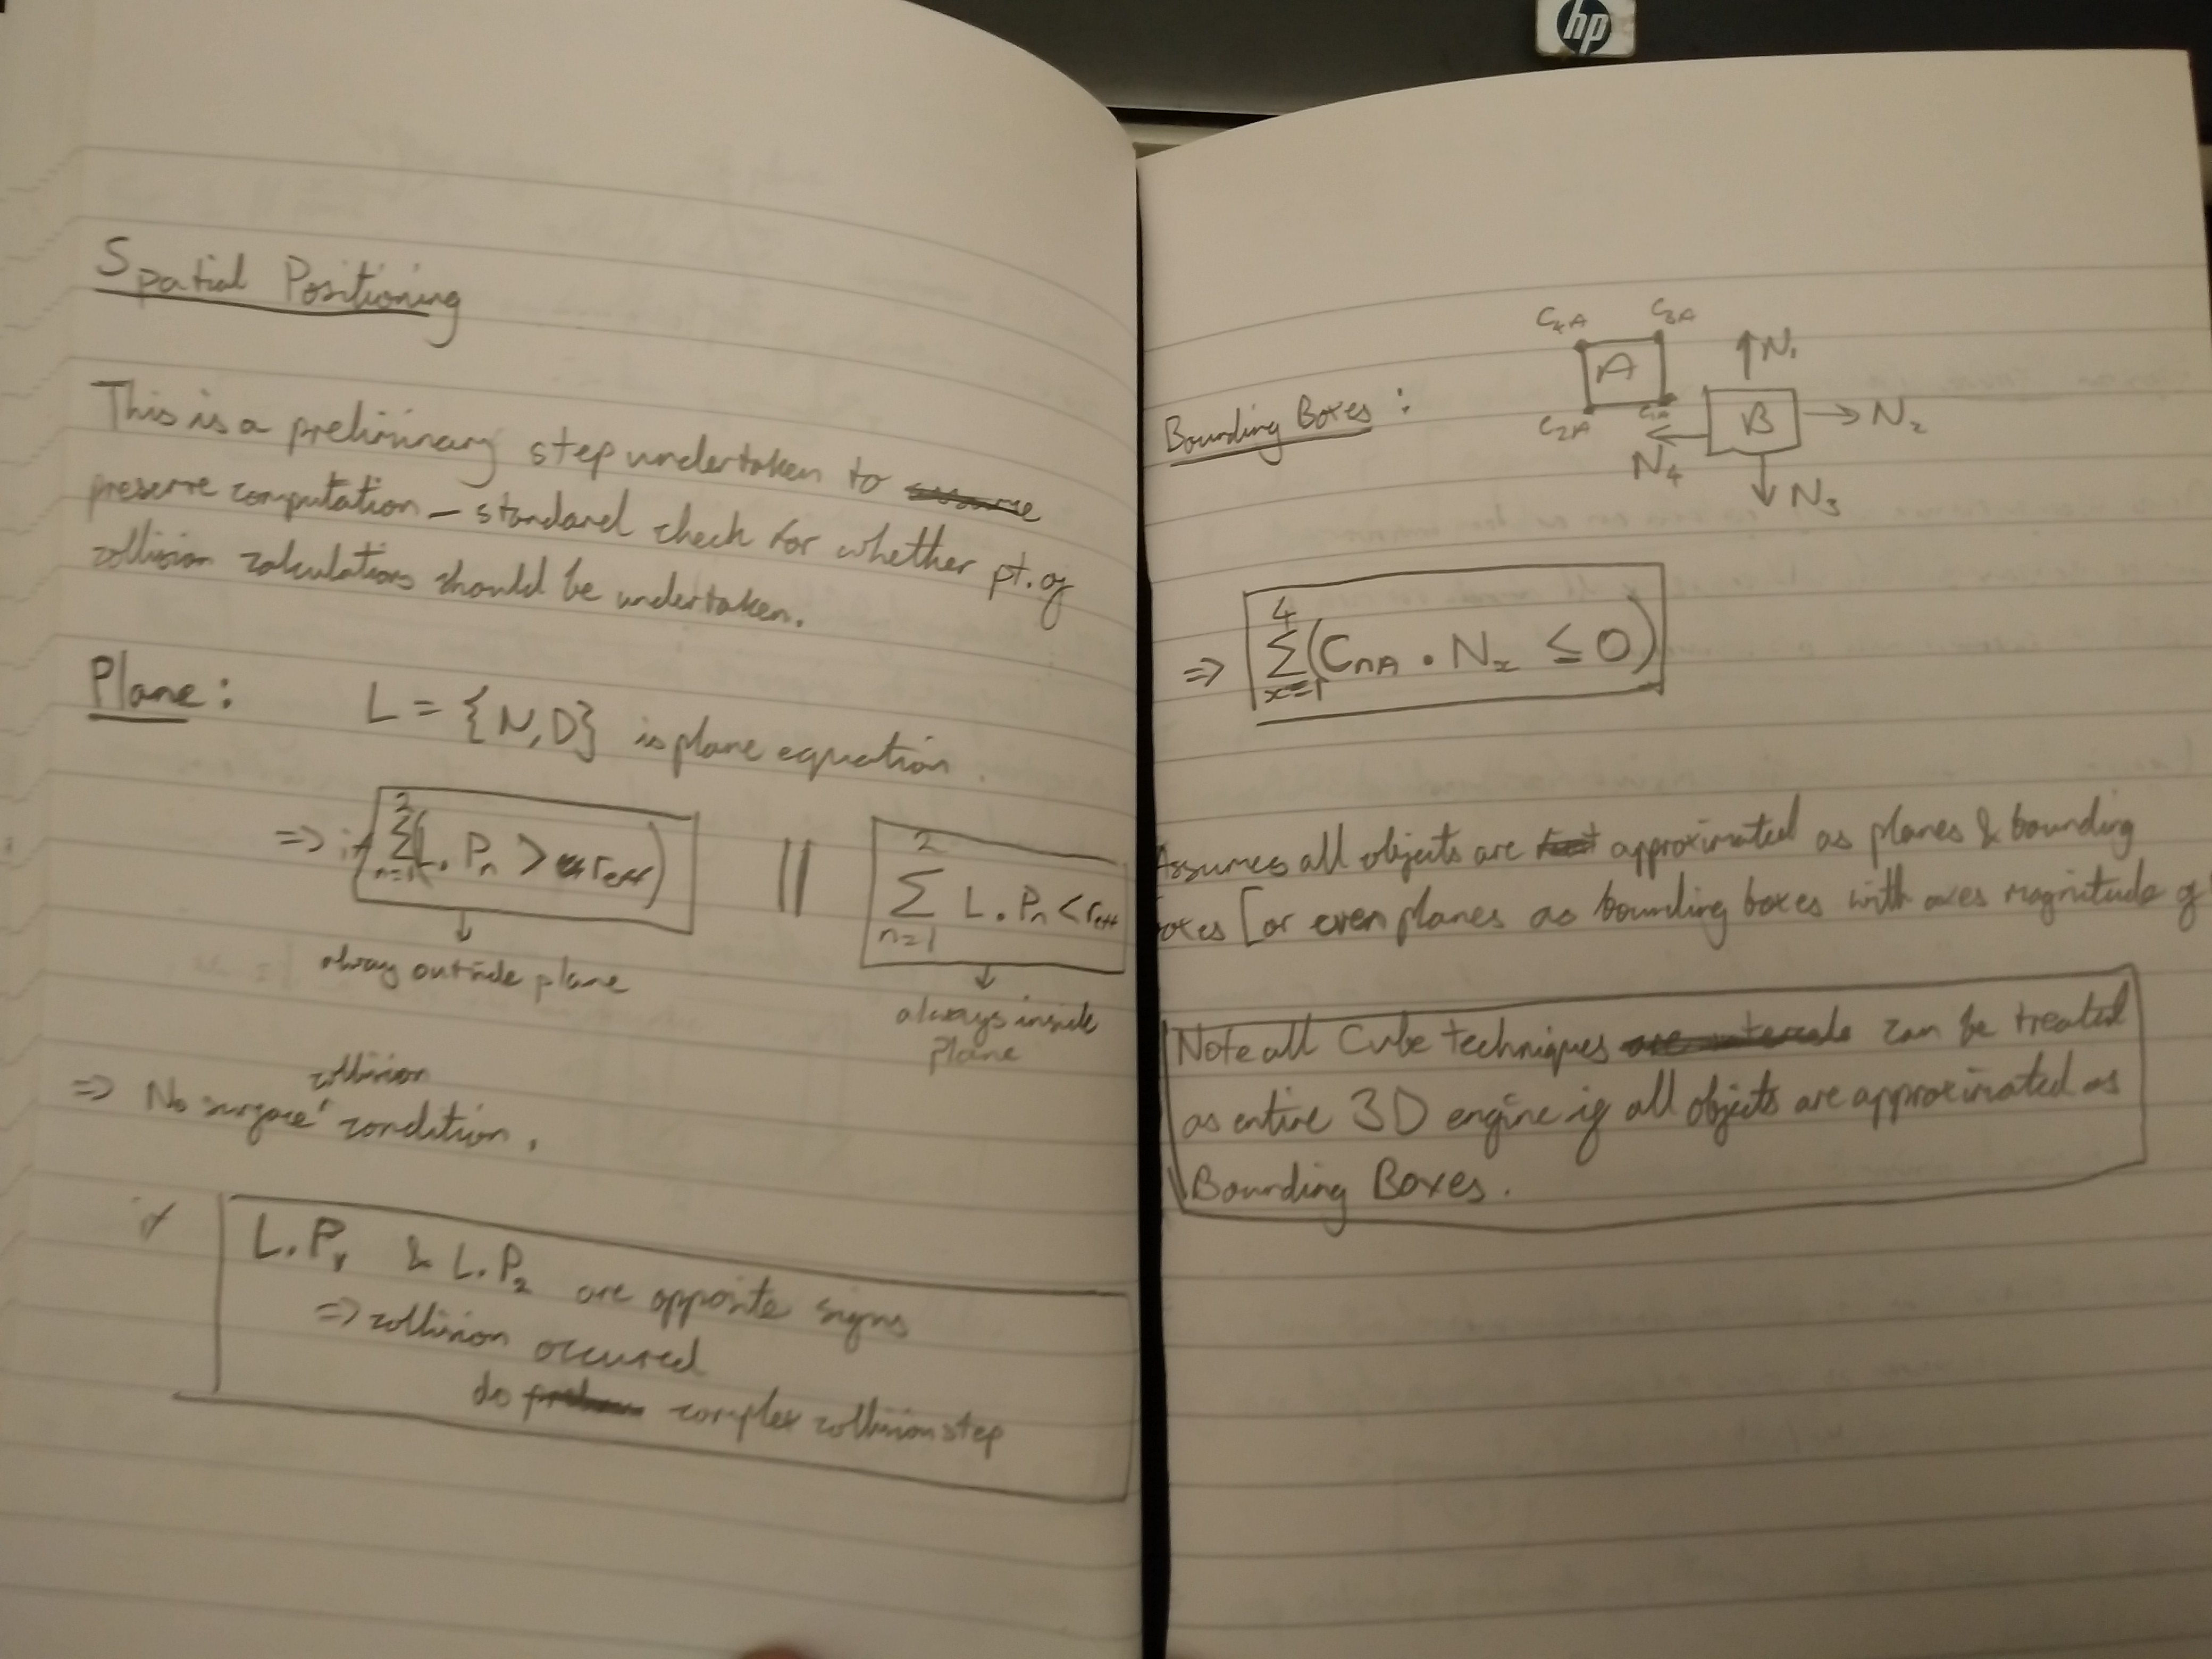 hp
Spatial Positioning
This is a preliminary step undertaken to
preserve computation – standard check for whether pt. of
collision calculations should be undertaken.
Plane: L = {N,D} is plane equation.
=> if Σ²ₙ₌₁(L. Pₙ > r_eff) || Σ²ₙ₌₁ L. Pₙ < r_eff
alway outside plane
always inside
plane
collision
=> No surface condition.
if L.P₁ & L.P₂ are opposite signs
=> collision occured
do complex collision step
C₄A C₃A
A
C₂A C₁A
N₁
B
N₂
N₃
N₄
Bounding Boxes:
=> Σ⁴ₓ₌₁(CₙA . Nₓ ≤ 0)
Assumes all objects are approximated as planes & bounding
[or even planes as bounding boxes with axes magnitude of
Note all Cube techniques can be treated
as entire 3D engine if all objects are approximated as
Bounding Boxes.